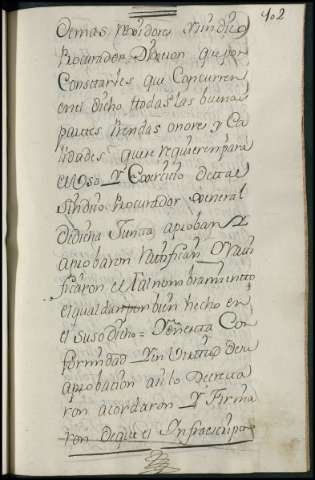 402
Demas rexidores y sindico
Procurador Dixeron que por
Constarles que Concurren
en el dicho ttodas las buenas
partes Prendas onores y Ca
lidades que se requieren para
el Uso Y Exercicio de tal
Sindico Procurador General
De dicha Junta aproban Y
aprobaron Ratifican Y Rati
ficaron el tal nombramiento
el qual dan por bien hecho en
el suso dicho = Y en esta Con
formidad Y en Virtud de su
aprobacion asi lo Decreta
ron acordaron Y Firma
ron de que el Infraescripto